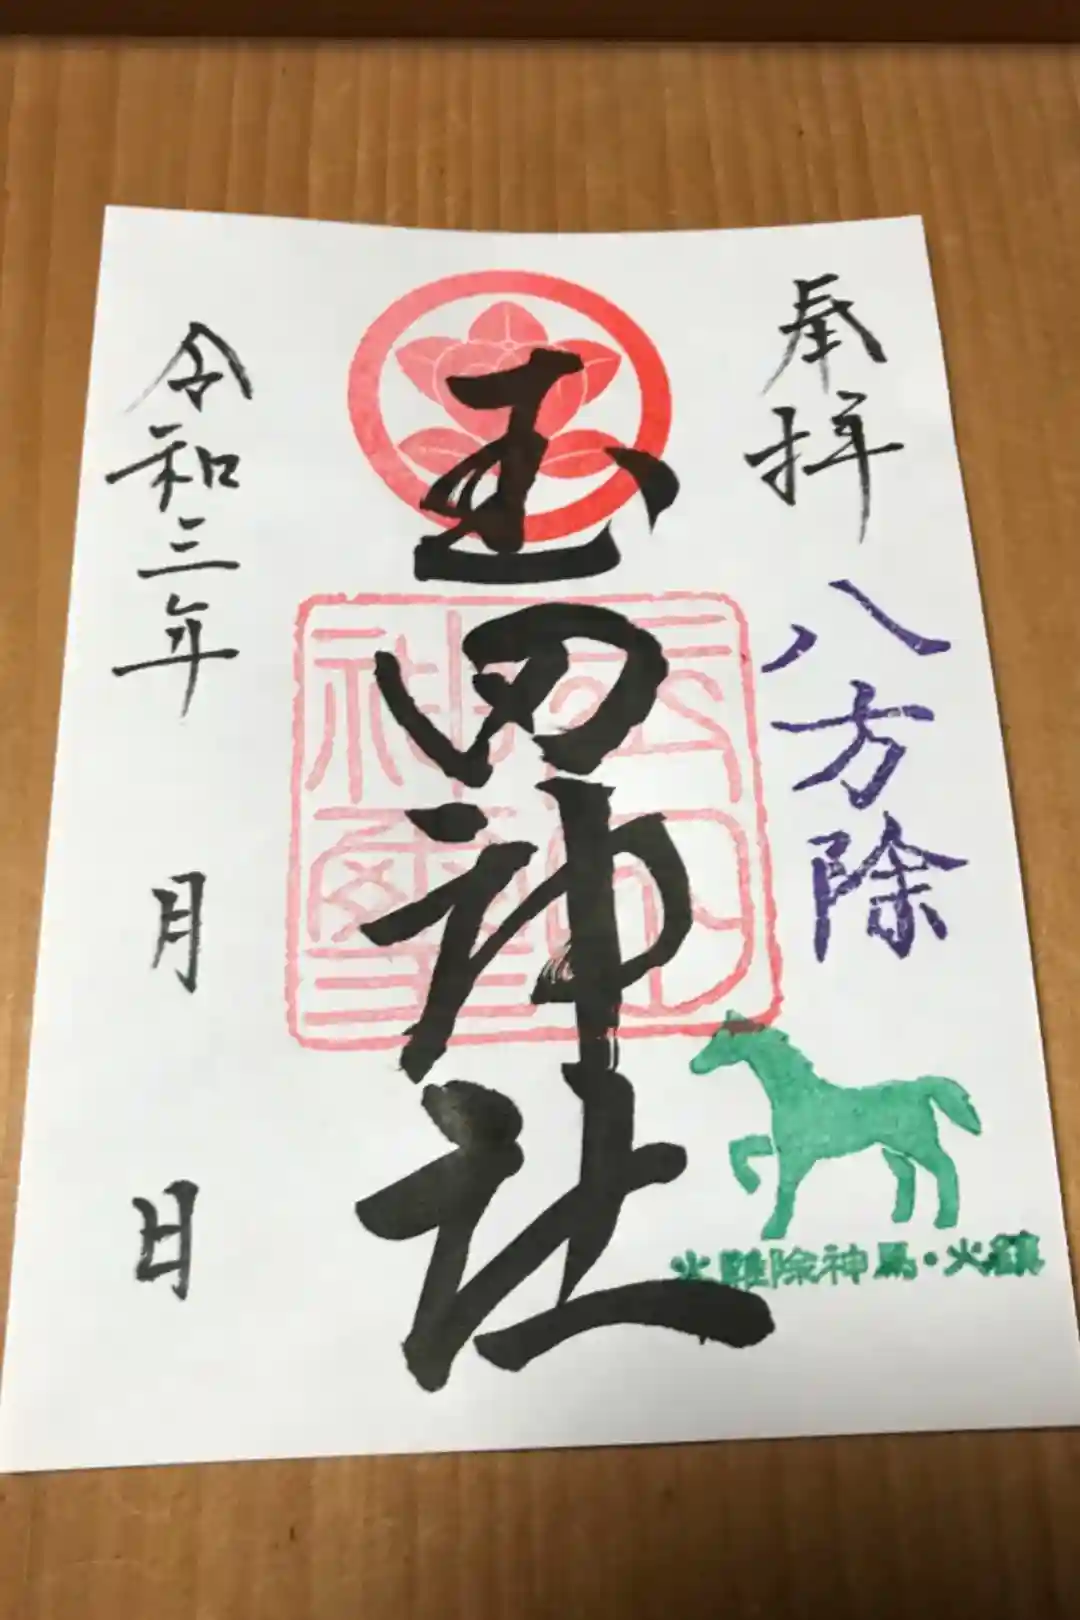 奉拝
八方除
火難除神馬・火鎮
玉田神社
玉田神社璽
令和三年
月
日